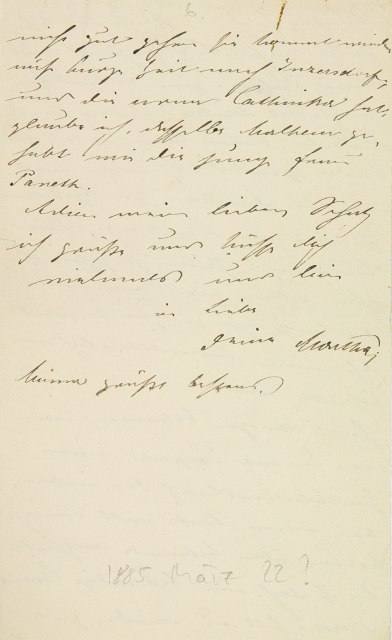 6
nicht gut gehen sie kommt wieder
auf kurze Zeit nach Inzersdorf,
und die arme Cathinka hat,
glaube ich, dasselbe Malheur ge-
habt wie die junge Frau
Paneth.
Adieu mein lieber Schatz
ich grüße und küsse dich
vielmals und bin
in Liebe
Deine Martha,
Minna grüßt bestens.
1885 März 22?